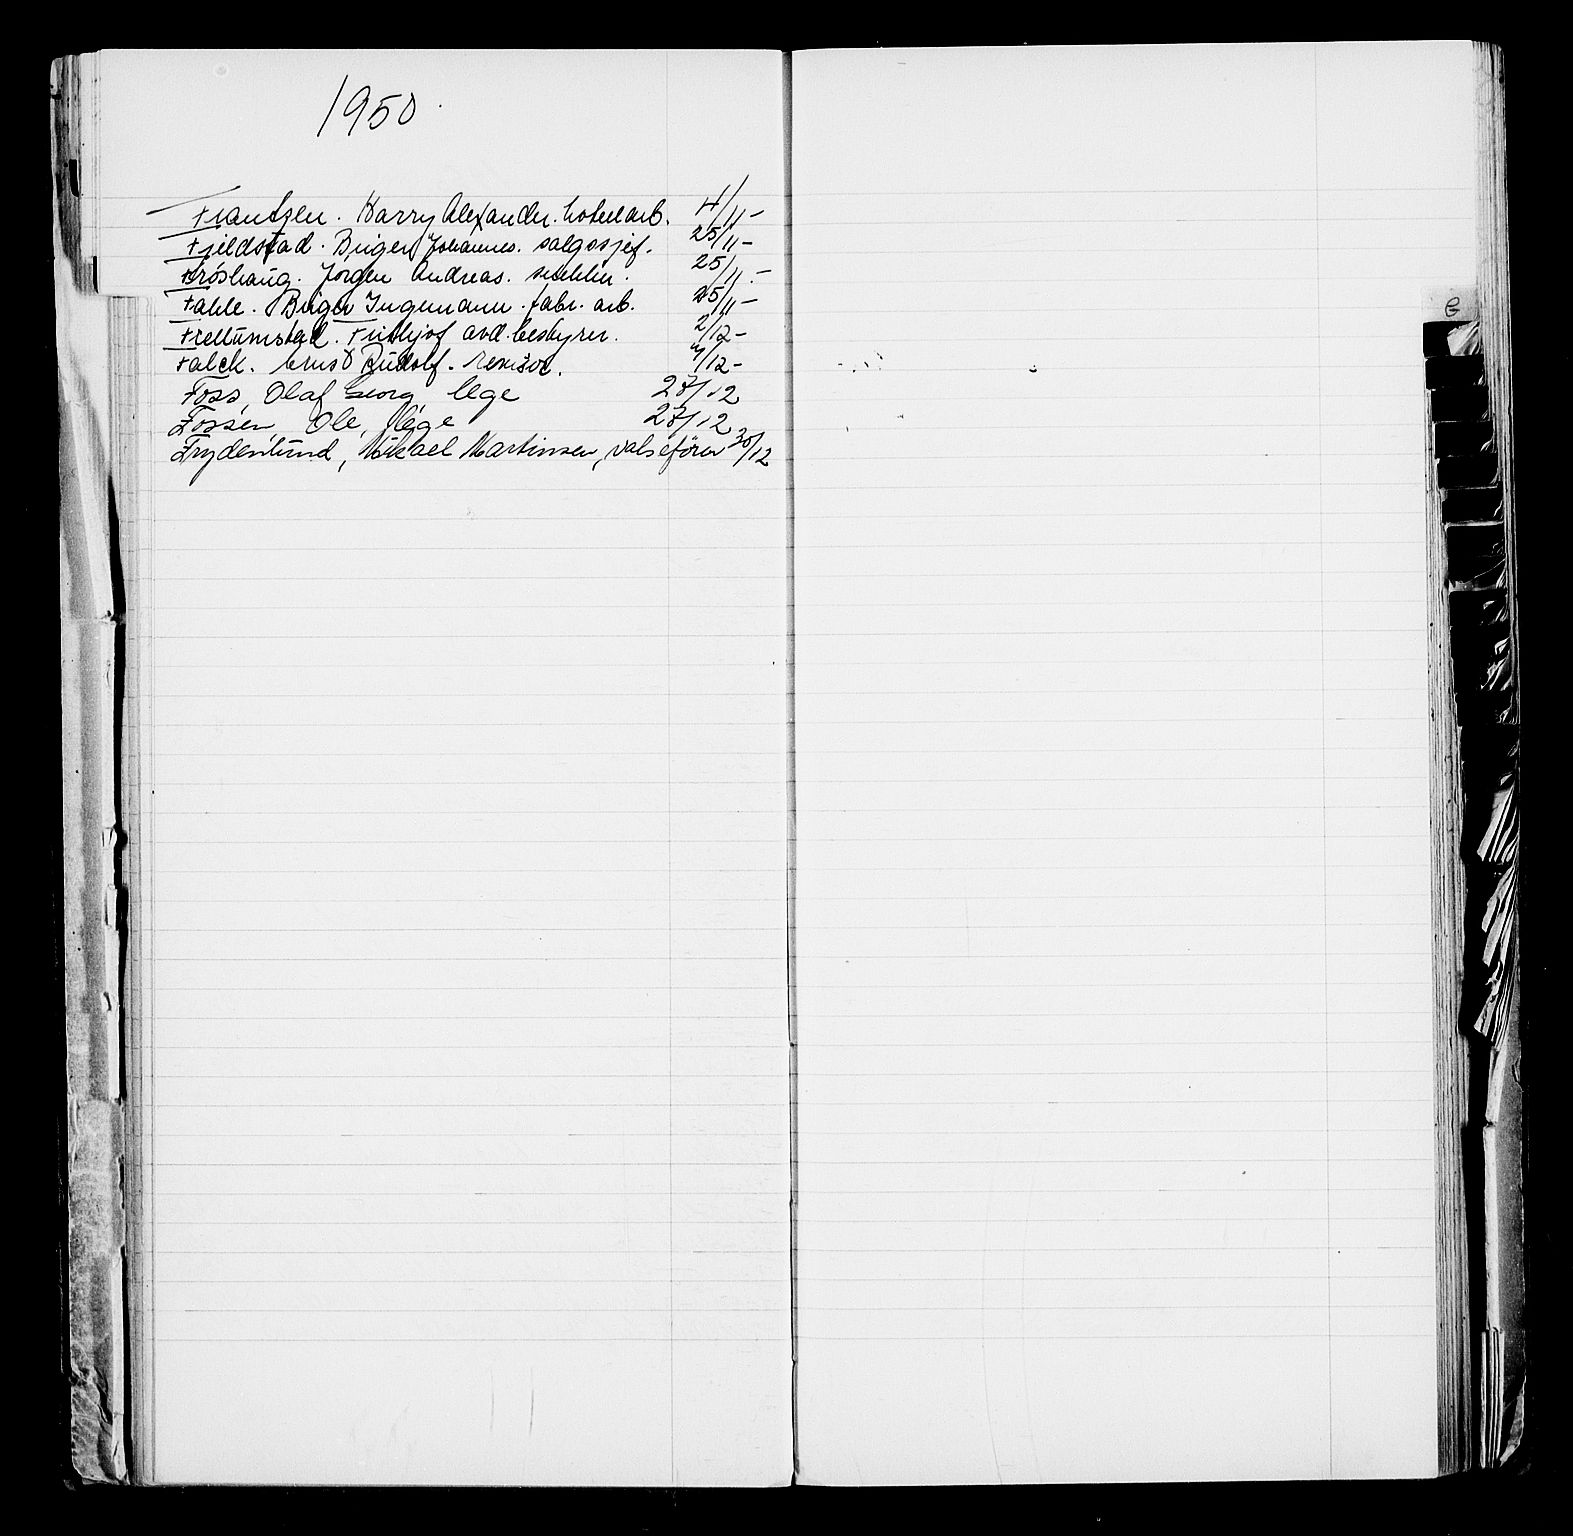 1950.
Frantzen. Harry Alexander. hotellarb. 4/11-
Fjeldstad. Birger Johannes. salgssjef. 25/11-
Frøshaug. Jørgen Andreas. snekker. 25/11.-
Fahle. Birger Ingemann. fabr. arb. 25/11-
Frellumstad. Frithjof avd. bestyrer. 2/12-
Falck. Ernst Rudolf. revisor. 4/12-
Foss, Olaf Georg, lege 27/12
Fossen, Ole, lege 27/12
Frydenlund, Mikael Martinsen, valsefører 30/12
G